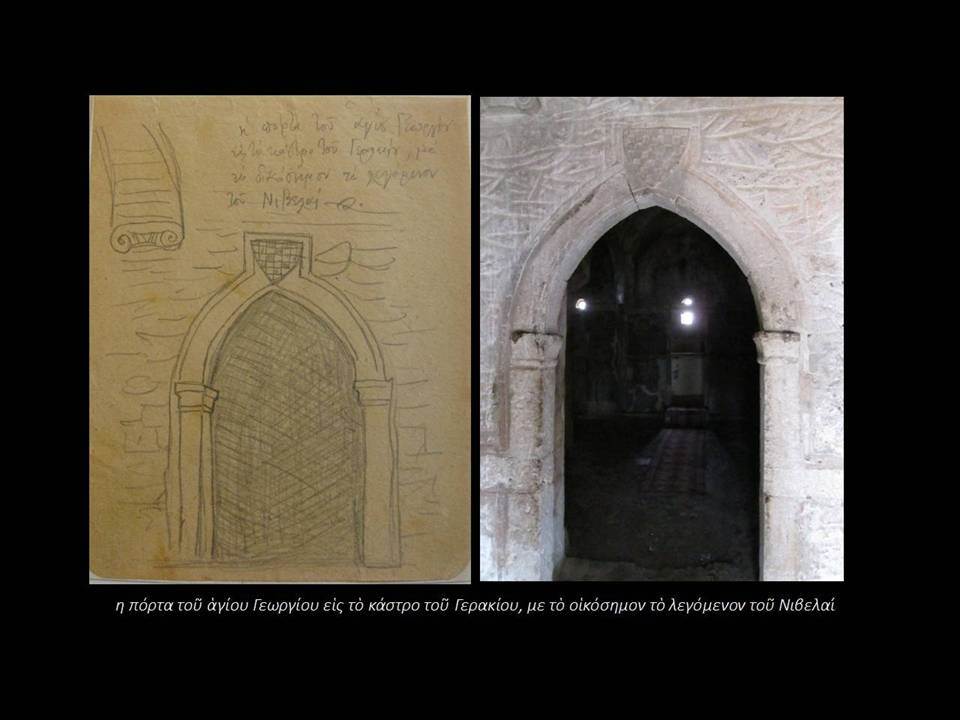 ἡ πόρτα τοῦ ἁγίου Γεωργίου
εἰς τὸ κάστρο τοῦ Γερακίου, μὲ
τὸ οἰκόσημον τὸ λεγόμενον
τοῦ Νιβελαί
η πόρτα τοῦ ἁγίου Γεωργίου εἰς τὸ κάστρο τοῦ Γερακίου, με τὸ οἰκόσημον τὸ λεγόμενον τοῦ Νιβελαί